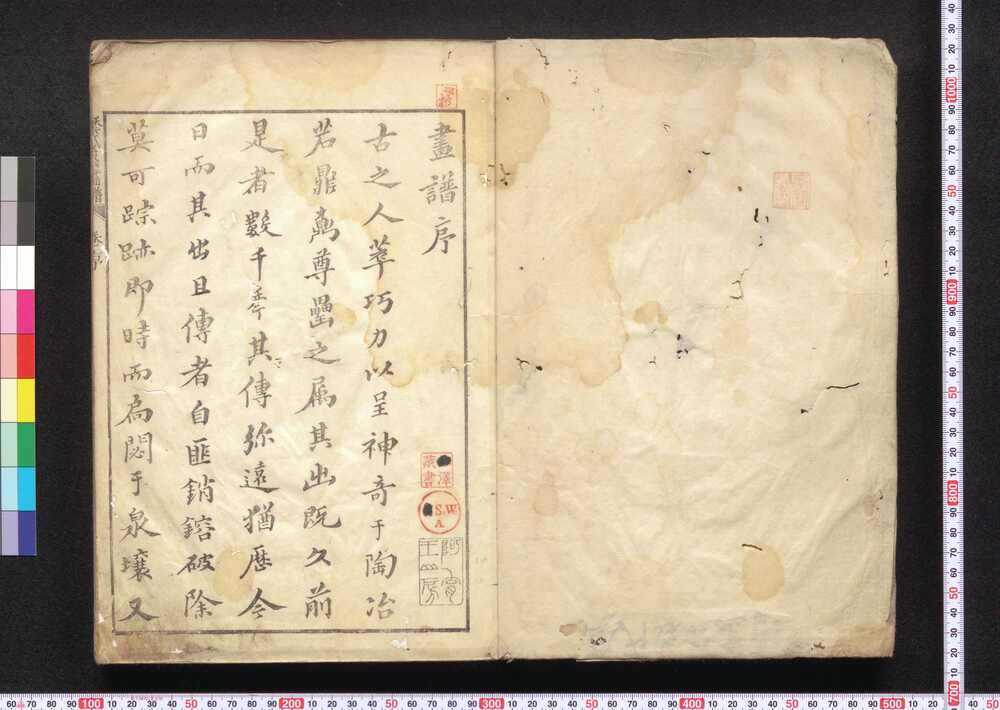 畫譜序
古之人萃巧力以呈神奇于陶冶
若鼎彝尊罍之属其出既久前
是者數千季其傳弥遠猶歷今
日而其出且傳者自匪銷鎔破除
莫可踪跡即時而為閟于泉壤又
藏書
S.W.
A